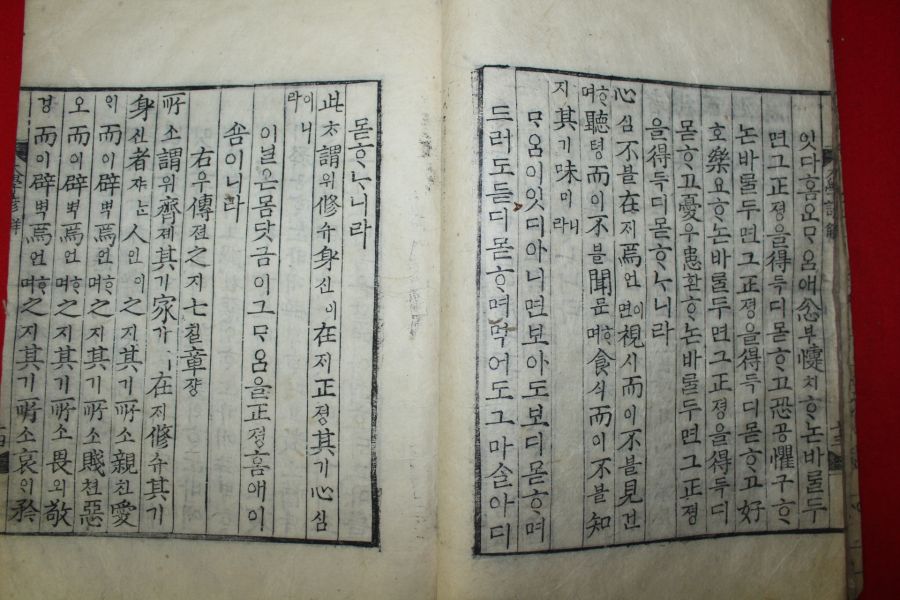 잇다홈ᄋᆞᆫᄆᆞᄋᆞᆷ애忿분懥치ᄒᆞ논바ᄅᆞᆯ두
면그正졍을得득디몯ᄒᆞ고恐공懼구ᄒᆞ
논바ᄅᆞᆯ두면그正졍을得득디몯ᄒᆞ고好
호樂요ᄒᆞ논바ᄅᆞᆯ두면그正졍을得득디
몯ᄒᆞ고憂우患환ᄒᆞ논바ᄅᆞᆯ두면그正졍
을得득디몯ᄒᆞᄂᆞ니라
心심不블在ᄌᆡ焉언이면視시而이不블見견
ᄒᆞ며聽텽而이不블聞문ᄒᆞ며食식而이不블知
지其기味미니라
ᄆᆞᄋᆞᆷ이잇디아니면보아도보디몯ᄒᆞ며
드러도듣디몯ᄒᆞ며먹어도그마슬아디
몯ᄒᆞᄂᆞ니라
此ᄎᆞ謂위修슈身신이在ᄌᆡ正졍其기心심
이니라
이닐온몸닷금이그ᄆᆞᄋᆞᆷ을正졍홈애이
숌이니라
右우傳뎐之지七칠章쟝
所소謂위齊졔其기家가ㅣ在ᄌᆡ修슈其기
身신者쟈ᄂᆞᆫ人인이之지其기所소親친愛
ᄋᆡ而이辟벽焉언ᄒᆞ며之지其기所소賤쳔惡
오而이辟벽焉언ᄒᆞ며之지其기所소畏외敬
경而이辟벽焉언ᄒᆞ며之지其기所소哀ᄋᆡ矜